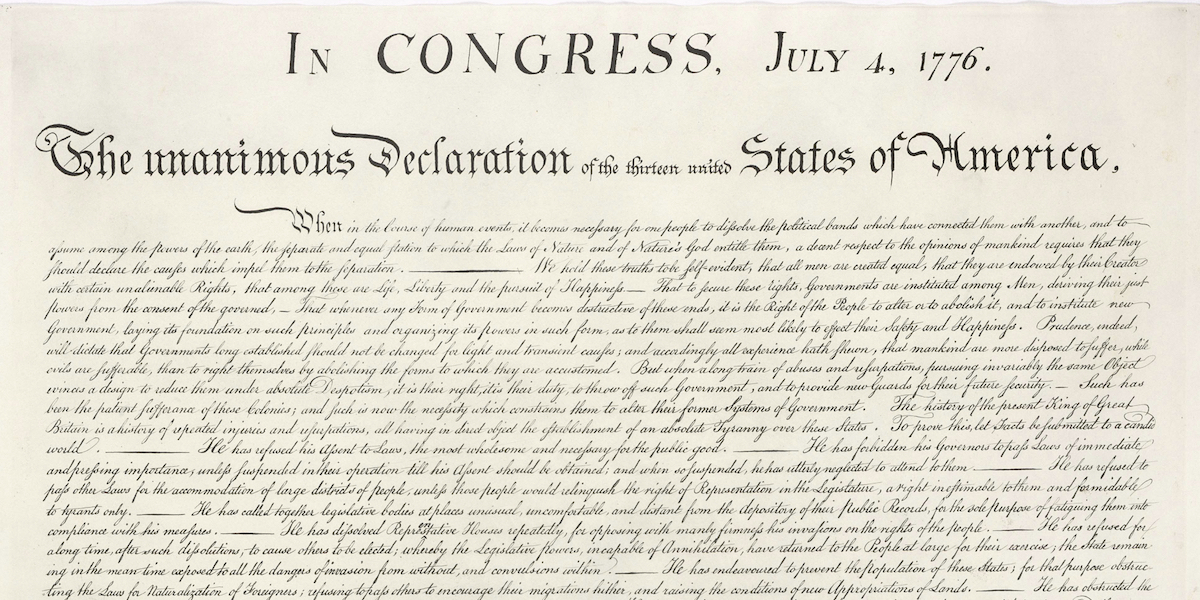 In CONGRESS, July 4, 1776.
The unanimous Declaration of the thirteen united States of America,
When in the Course of human events, it becomes necessary for one people to dissolve the political bands which have connected them with another, and to
assume among the powers of the earth, the separate and equal station to which the Laws of Nature and of Nature's God entitle them, a decent respect to the opinions of mankind requires that they
should declare the causes which impel them to the separation. ———— We hold these truths to be self-evident, that all men are created equal, that they are endowed by their Creator
with certain unalienable Rights, that among these are Life, Liberty and the pursuit of Happiness.— That to secure these rights, Governments are instituted among Men, deriving their just
powers from the consent of the governed, — That whenever any Form of Government becomes destructive of these ends, it is the Right of the People to alter or to abolish it, and to institute new
Government, laying its foundation on such principles and organizing its powers in such form, as to them shall seem most likely to effect their Safety and Happiness. Prudence, indeed,
will dictate that Governments long established should not be changed for light and transient causes; and accordingly all experience hath shewn, that mankind are more disposed to suffer, while
evils are sufferable, than to right themselves by abolishing the forms to which they are accustomed. But when a long train of abuses and usurpations, pursuing invariably the same Object
evinces a design to reduce them under absolute Despotism, it is their right, it is their duty, to throw off such Government, and to provide new Guards for their future security. — Such has
been the patient sufferance of these Colonies; and such is now the necessity which constrains them to alter their former Systems of Government. The history of the present King of Great
Britain is a history of repeated injuries and usurpations, all having in direct object the establishment of an absolute Tyranny over these States. To prove this, let Facts be submitted to a candid
world. ———— He has refused his Assent to Laws, the most wholesome and necessary for the public good. ———— He has forbidden his Governors to pass Laws of immediate
and pressing importance, unless suspended in their operation till his Assent should be obtained; and when so suspended, he has utterly neglected to attend to them. ———— He has refused to
pass other Laws for the accommodation of large districts of people, unless those people would relinquish the right of Representation in the Legislature, a right inestimable to them and formidable
to tyrants only. ———— He has called together legislative bodies at places unusual, uncomfortable, and distant from the depository of their Public Records, for the sole purpose of fatiguing them into
compliance with his measures. ———— He has dissolved Representative Houses repeatedly, for opposing with manly firmness his invasions on the rights of the people. ———— He has refused for
a long time, after such dissolutions, to cause others to be elected; whereby the Legislative powers, incapable of Annihilation, have returned to the People at large for their exercise; the State remain
ing in the mean time exposed to all the dangers of invasion from without, and convulsions within. ———— He has endeavoured to prevent the population of these States; for that purpose obstruc-
ting the Laws for Naturalization of Foreigners; refusing to pass others to encourage their migrations hither, and raising the conditions of new Appropriations of Lands. ———— He has obstructed the